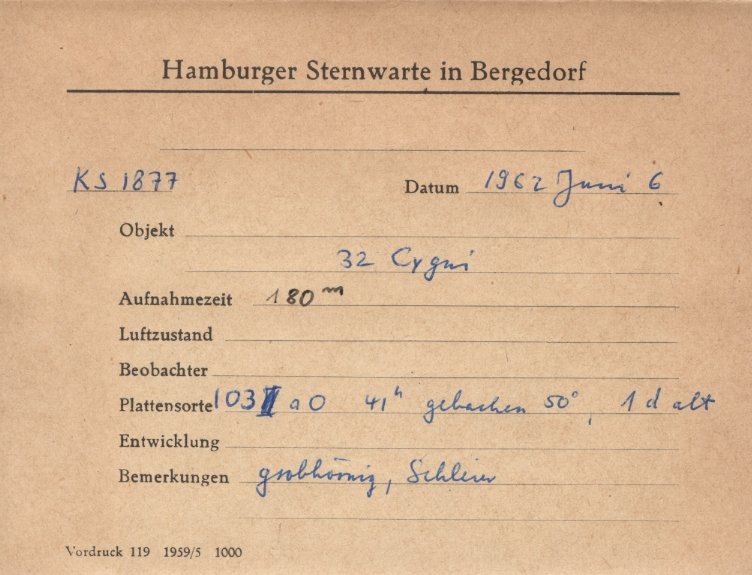 Hamburger Sternwarte in Bergedorf
KS 1877 Datum 1962 Juni 6
Objekt
32 Cygni
Aufnahmezeit 180 m
Luftzustand
Beobachter
Plattensorte 103 a O 41h gebacken 50°, 1 d alt
Entwicklung
Bemerkungen grobkörnig, Schleier
Vordruck 119 1959/5 1000